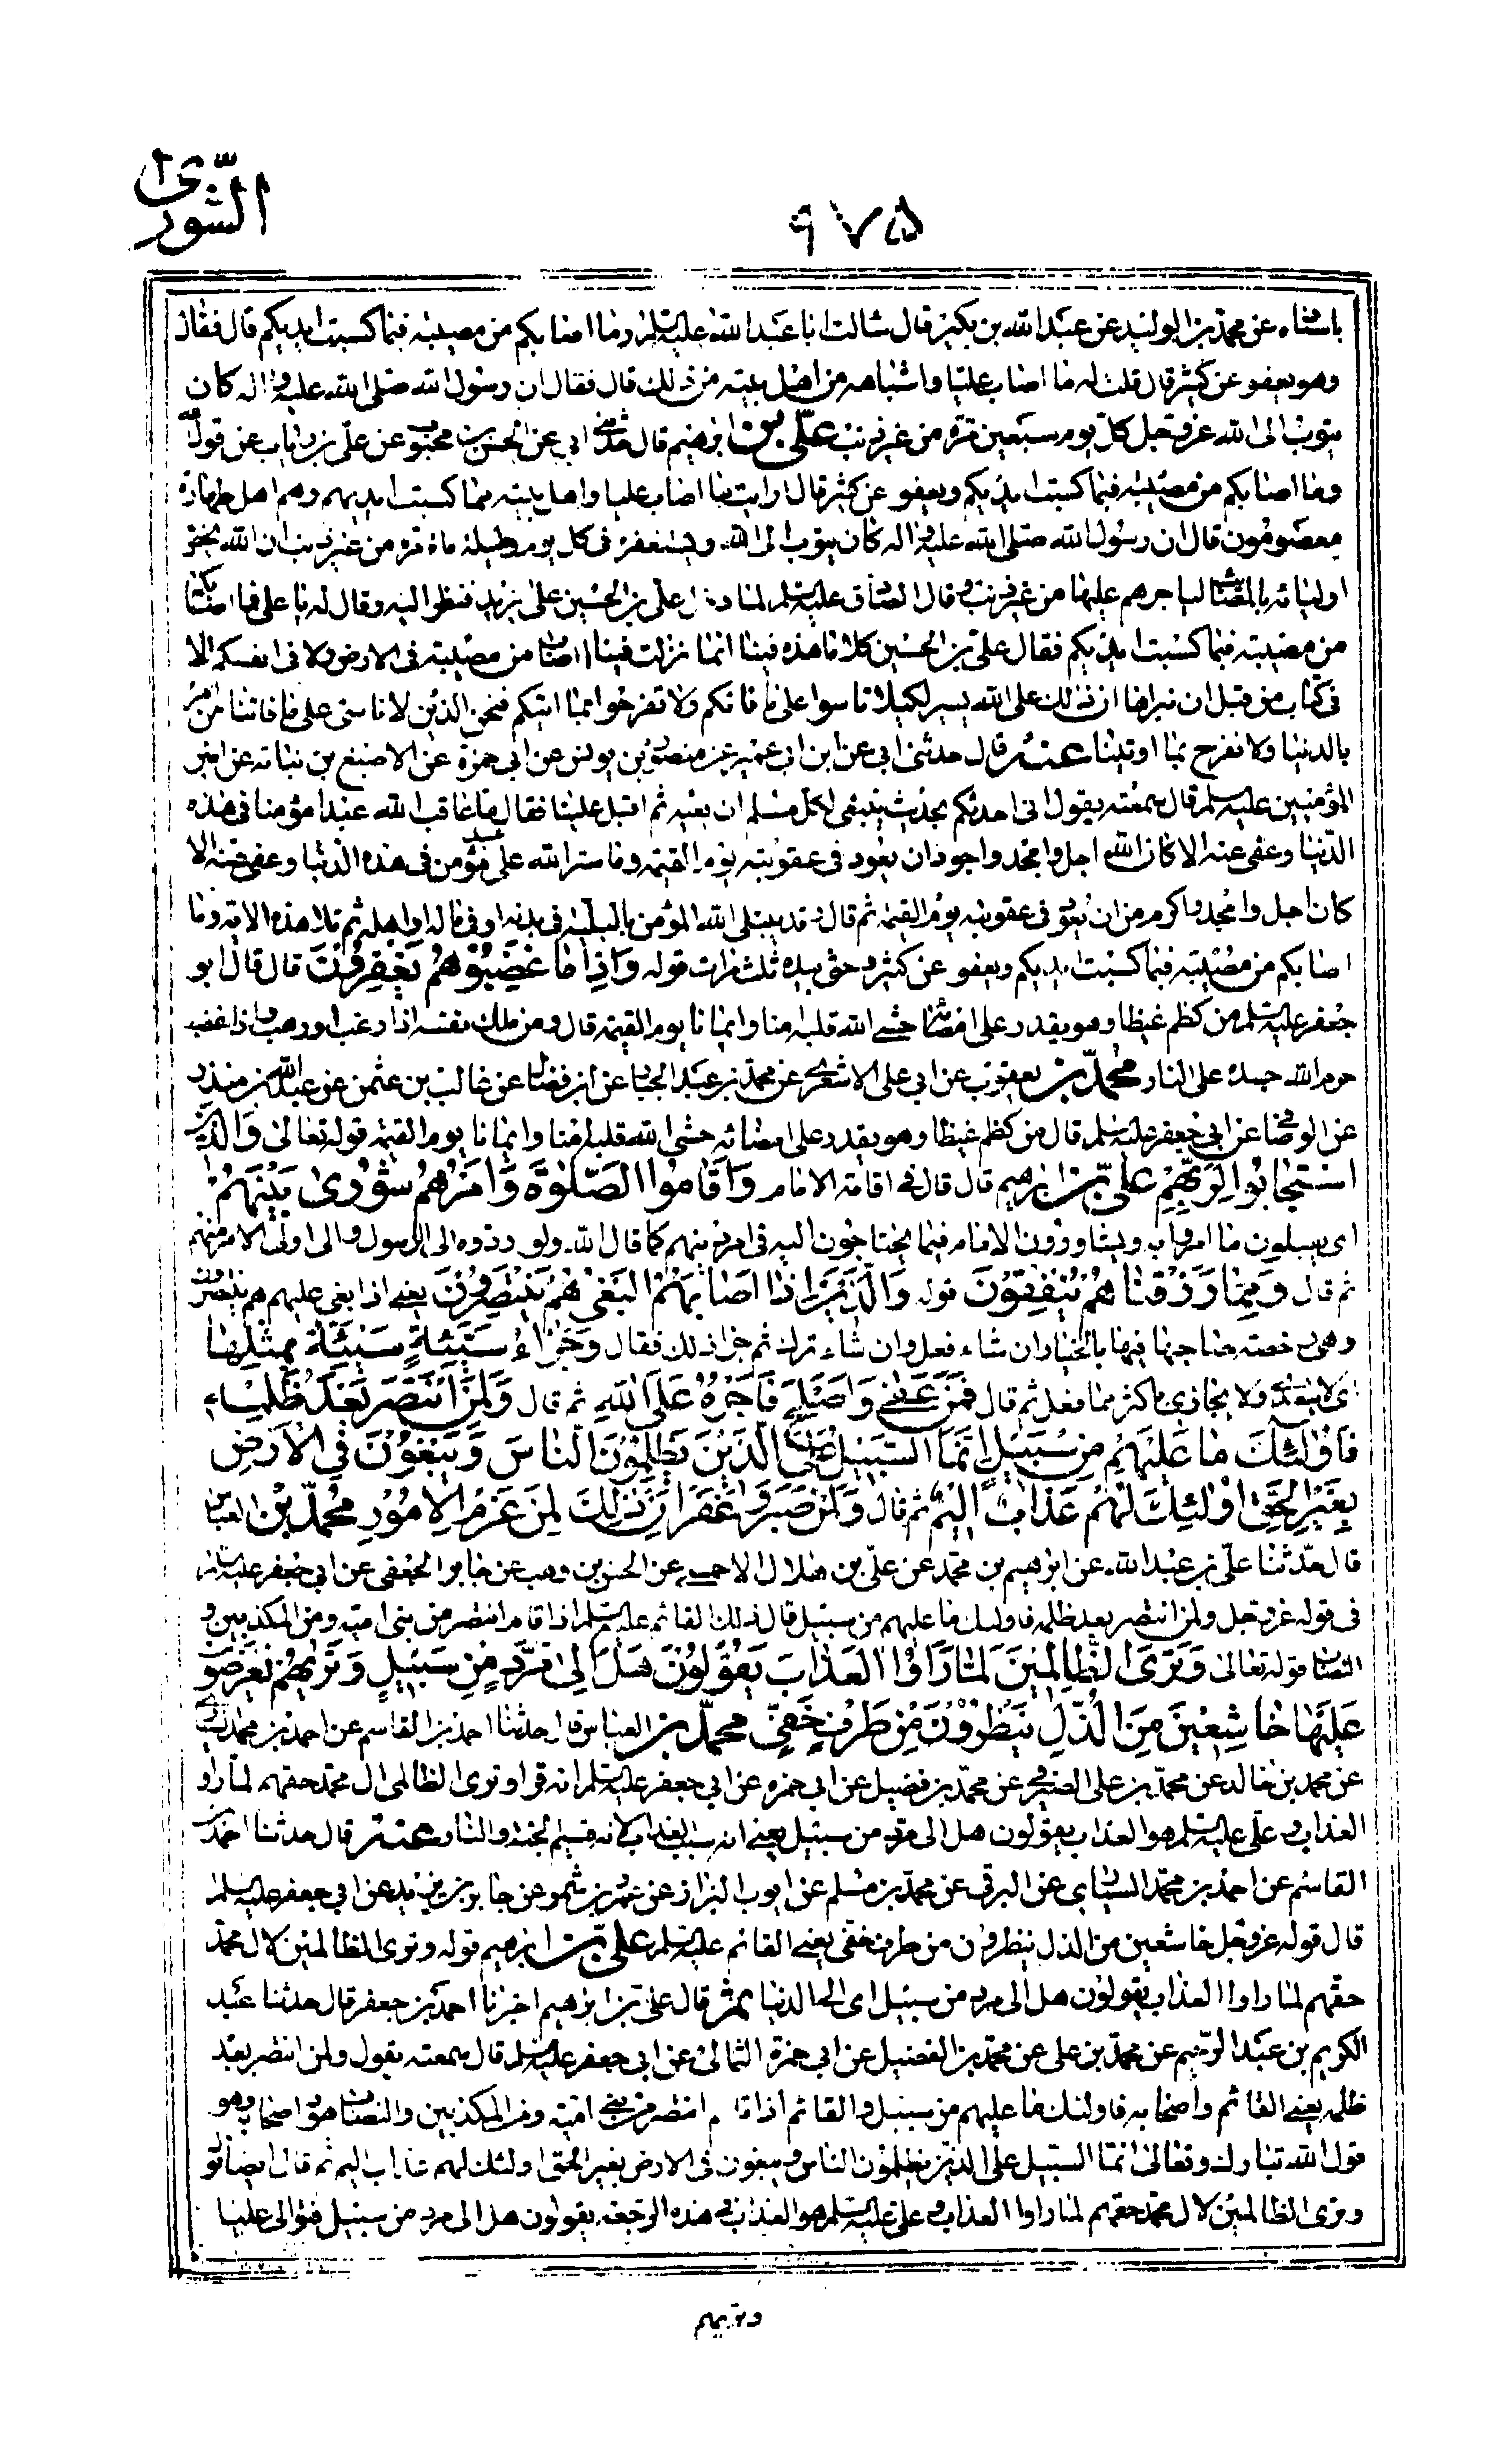 الشورى
٩٧٥
باسناده عن محمد بن الوليد عن عبد الله بن بكير قال سالت ابا عبد الله عليه السلم وما اصابكم من مصيبة فبما كسبت ايديكم قال فقال
وهو يعفو عن كثير قال قلت له ما اصاب عليا واشباهه من اهل بيته من ذلك قال فقال ان رسول الله صلى الله عليه واله كان
يتوب الى الله عز وجل كل يوم سبعين مرة من غير ذنب على بن ابرهيم قال حدثنى ابي عن الحسن بن محبوب عن على بن رئاب عن قول الله
وما اصابكم من مصيبة فبما كسبت ايديكم ويعفو عن كثير قال ارايت ما اصاب عليا واهل بيته بما كسبت ايديهم وهم اهل طهارة
معصومون قال ان رسول الله صلى الله عليه واله كان يتوب الى الله ويستغفره فى كل يوم وليلة ماة مرة من غير ذنب ان الله يخص
اوليائه بالمصائب لياجرهم عليها من غير ذنب وقال الصادق عليه السلم لما دخل على بن الحسين على يزيد فنظر اليه وقال له يا على ما اصابكم
من مصيبة فبما كسبت ايديكم فقال على بن الحسين كلا ما هذه فينا انما نزلت فينا ما اصاب من مصيبة فى الارض ولا فى انفسكم الا
فى كتاب من قبل ان نبراها ان ذلك على الله يسير لكيلا تاسوا على ما فاتكم ولا تفرحوا بما اتيكم فنحن الذين لا ناسى على ما فاتنا من امر
بالدنيا ولا نفرح بما اوتينا عنه قال حدثنى ابي عن ابن ابي عمير عن منصور بن يونس عن ابي حمزة عن الاصبغ بن نباتة عن امير
المؤمنين عليه السلم قال سمعته يقول انى احدثكم بحديث ينبغى لكل مسلم ان يعيه ثم اقبل علينا فقال ما عاقب الله عبدا مؤمنا فى هذه
الدنيا وعفى عنه الا كان الله اجل وامجد واجود ان يعود فى عقوبته يوم القيمة وما ستر الله على عبد مؤمن فى هذه الدنيا وعفى عنه الا
كان اجل وامجد واكرم من ان يعود فى عقوبته يوم القيمة ثم قال وقد يبتلى الله المؤمن بالبلية فى بدنه او فى ماله او اهله ثم تلا هذه الاية وما
اصابكم من مصيبة فبما كسبت ايديكم ويعفو عن كثير وحثى بيده ثلث مرات قوله وَاِذا ما غَضِبُوا هُمْ يَغْفِرُونَ قال قال ابو
جعفر عليه السلم من كظم غيظا وهو يقدر على امضائه حشى الله قلبه امنا وايمانا يوم القيمة قال ومن ملك نفسه اذا رغب واذا رهب واذا غضب
حرم الله جسده على النار محمد بن يعقوب عن ابي على الاشعرى عن محمد بن عبد الجبار عن ابن فضال عن غالب بن عثمن عن عبد الله بن منذر
عن الوصافى عن ابي جعفر عليه السلم قال من كظم غيظا وهو يقدر على امضائه حشى الله قلبه امنا وايمانا يوم القيمة قوله تعالى وَالَّذينَ
اسْتَجابُوا لِرَبِّهِمْ على بن ابرهيم قال قال فى اقامة الامام وَاَقامُوا الصَّلوةَ وَاَمْرُهُمْ شُورى بَيْنَهُمْ
اى يقبلون ما امروا به ويشاورون الامام فيما يحتاجون اليه فى امر دينهم كما قال الله ولو ردوه الى الرسول والى اولى الامر منهم
ثم قال وَمِمّا رَزَقْناهُمْ يُنْفِقُونَ قوله وَالَّذينَ اِذا اَصابَهُمُ الْبَغْىُ هُمْ يَنْتَصِرُونَ يعنى اذا بغى عليهم هم ينتصرون
وهى رخصة صاحبها فيها بالخيار ان شاء فعل وان شاء ترك ثم جزا ذلك فقال وَجَزاءُ سَيِّئَةٍ سَيِّئَةٌ مِثْلُها
اى لا يتعدى ولا يجازى باكثر مما فعل ثم قال فَمَنْ عَفى وَاَصْلَحَ فَاَجْرُهُ عَلَى اللهِ ثم قال وَلَمَنِ انْتَصَرَ بَعْدَ ظُلْمِهِ
فَاُولئِكَ ما عَلَيْهِمْ مِنْ سَبيلٍ اِنَّمَا السَّبيلُ عَلَى الَّذينَ يَظْلِمُونَ النّاسَ وَيَبْغُونَ فِى الْاَرْضِ
بِغَيْرِ الْحَقِّ اُولئِكَ لَهُمْ عَذابٌ اَليمٌ ثم قال وَلَمَنْ صَبَرَ وَغَفَرَ اِنَّ ذلِكَ لَمِنْ عَزْمِ الْاُمُورِ محمد بن العباس
قال حدثنا على بن عبد الله عن ابرهيم بن محمد عن على بن هلال الاحمسى عن الحسن بن وهب عن جابر الجعفى عن ابي جعفر عليه السلم
فى قوله عز وجل ولمن انتصر بعد ظلمه فاولئك ما عليهم من سبيل قال ذلك القائم عليه السلم اذا قام انتصر من بنى امية ومن المكذبين و
النصاب قوله تعالى وَتَرَى الظّالِمينَ لَمّا رَاَوُا الْعَذابَ يَقُولُونَ هَلْ اِلى مَرَدٍّ مِنْ سَبيلٍ وَتَريهُمْ يُعْرَضُونَ
عَلَيْها خاشِعينَ مِنَ الذُّلِّ يَنْظُرُونَ مِنْ طَرْفٍ خَفِىٍّ محمد بن العباس قال حدثنا احمد بن القاسم عن احمد بن محمد السيارى
عن محمد بن خالد عن محمد بن على الصيرفى عن محمد بن فضيل عن ابي حمزه عن ابي جعفر عليه السلم انه قرا وترى الظالمى ال محمد حقهم لما راو
العذاب وعلى عليه السلم هو العذاب يقولون هل الى مرد من سبيل يعنى انه سبب العذاب لانه قسيم الجنة والنار عنه قال حدثنا احمد بن
القاسم عن احمد بن محمد السيارى عن البرقى عن محمد بن مسلم عن ايوب البزاز عن عمرو بن شمر عن جابر بن يزيد عن ابي جعفر عليه السلم
قال قوله عز وجل خاشعين من الذل ينظرون من طرف خفى يعنى القائم عليه السلم على بن ابرهيم قوله وترى الظالمين لال محمد
حقهم لما راوا العذاب يقولون هل الى مرد من سبيل اى الى الدنيا ثم قال على بن ابرهيم اخبرنا احمد بن جعفر قال حدثنا عبد
الكريم بن عبد الرحيم عن محمد بن على عن محمد بن الفضيل عن ابي حمزة الثمالى عن ابي جعفر عليه السلم قال سمعته يقول ولمن انتصر بعد
ظلمه يعنى القائم واصحابه فاولئك ما عليهم من سبيل والقائم اذا قام انتصر من بنى امية ومن المكذبين والنصاب هو واصحابه وهو
قول الله تبارك وتعالى انما السبيل على الذين يظلمون الناس ويبغون فى الارض بغير الحق اولئك لهم عذاب اليم ثم قال ايضا قو
وترى الظالمين لال محمد حقهم لما راوا العذاب وعلى عليه السلم هو العذاب فى هذه الرجعة يقولون هل الى مرد من سبيل فنوالى عليا
وتريهم